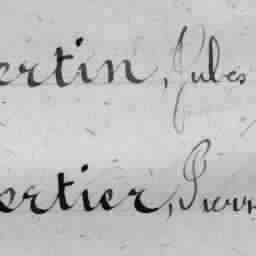 ertin, Jules
ertier, Pierr